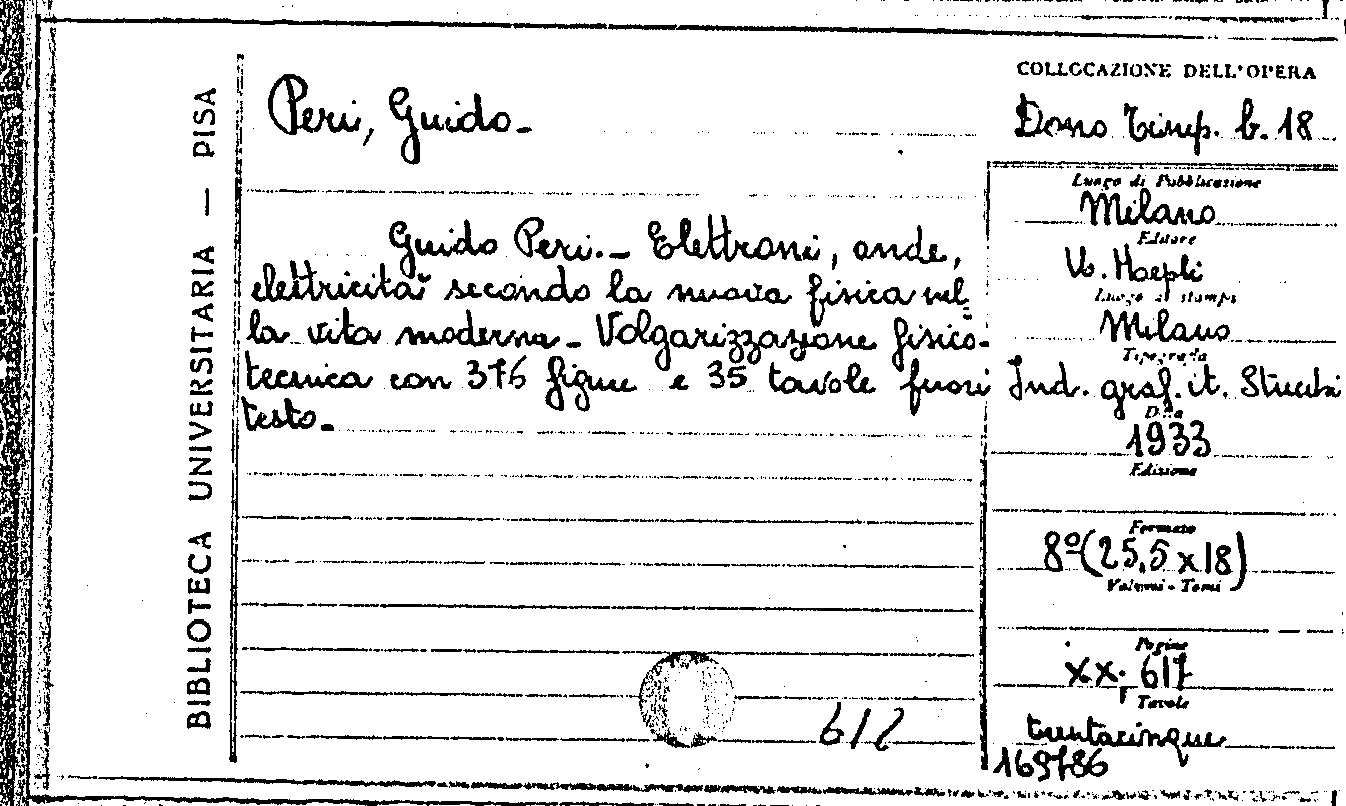 BIBLIOTECA UNIVERSITARIA — PISA
Peri, Guido.
Guido Peri. - Elettroni, onde,
elettricità secondo la nuova fisica nel=
la vita moderna - Volgarizzazione fisico-
tecnica con 376 figure e 35 tavole fuori
testo.
612
COLLOCAZIONE DELL'OPERA
Dono Timp. b. 18
Luogo di Pubblicazione
Milano
Editore
U. Hoepli
Luogo di stampa
Milano
Tipografia
Ind. graf. it. Stucchi
Data
1933
Edizione
Formato
8º (25,5 x 18)
Volumi - Tomi
Pagine
XX. 617
Tavole
trentacinque
169786